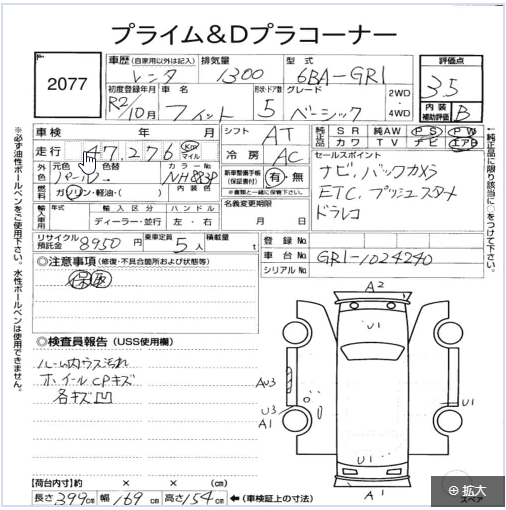 プライム＆Dプラコーナー
2077
車歴 (自家用以外は記入) 排気量 型式 評価点
レンタ 1300 6BA-GR1 3.5
初度登録年月 車名 形状・ドア数 グレード 2WD・4WD 内装補助評価 B
R2/10月 フィット 5 ベーシック
車検 年 月 シフト AT 純正品 SR 純AW PS PW
カワ TV ナビ エアB
走行 47,276 Km マイル 冷房 AC セールスポイント
外色 元色 色替 カラーNo
パール→ NH883P
新車整備手帳(保証書付) 有・無
※書類と一緒に保管して下さい。
ナビ、バックカメラ
ETC、プッシュスタート
ドラレコ
燃料 ガソリン・軽油・( ) 内装色
名義変更期限 月 日
輸入車用 年式 輸入区分 ハンドル
ディーラー・並行 左・右
リサイクル預託金 8950 円 乗車定員 5人 積載量 t
登録No.
車台No. GR1-1024240
シリアルNo
◎注意事項 (修復・不具合箇所および状態等)
保 取
◎検査員報告 (USS使用欄)
ルーム内ウス汚れ
ホイールCPキズ
各キズ凹
A2
U1
U1
AU3
U3
A1
U1
A1
【荷台内寸】約 × × (cm)
長さ 399cm 幅 169cm 高さ 154cm ←(車検証上の寸法)
スペア
拡大
※必ず油性ボールペンをご使用下さい。水性ボールペンは使用できません。
←純正品に限り該当に○をつけて下さい。